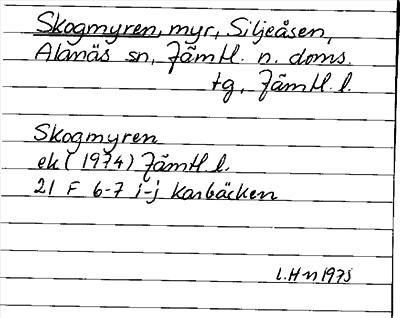 Skogmyren, myr, Siljeåsen,
Alanäs sn, Jämtl. n. doms.
tg, Jämtl. l.
Skogmyren
ek (1974) Jämtl. l.
21 F 6-7 i-j Karbäcken
l. H-n 1975